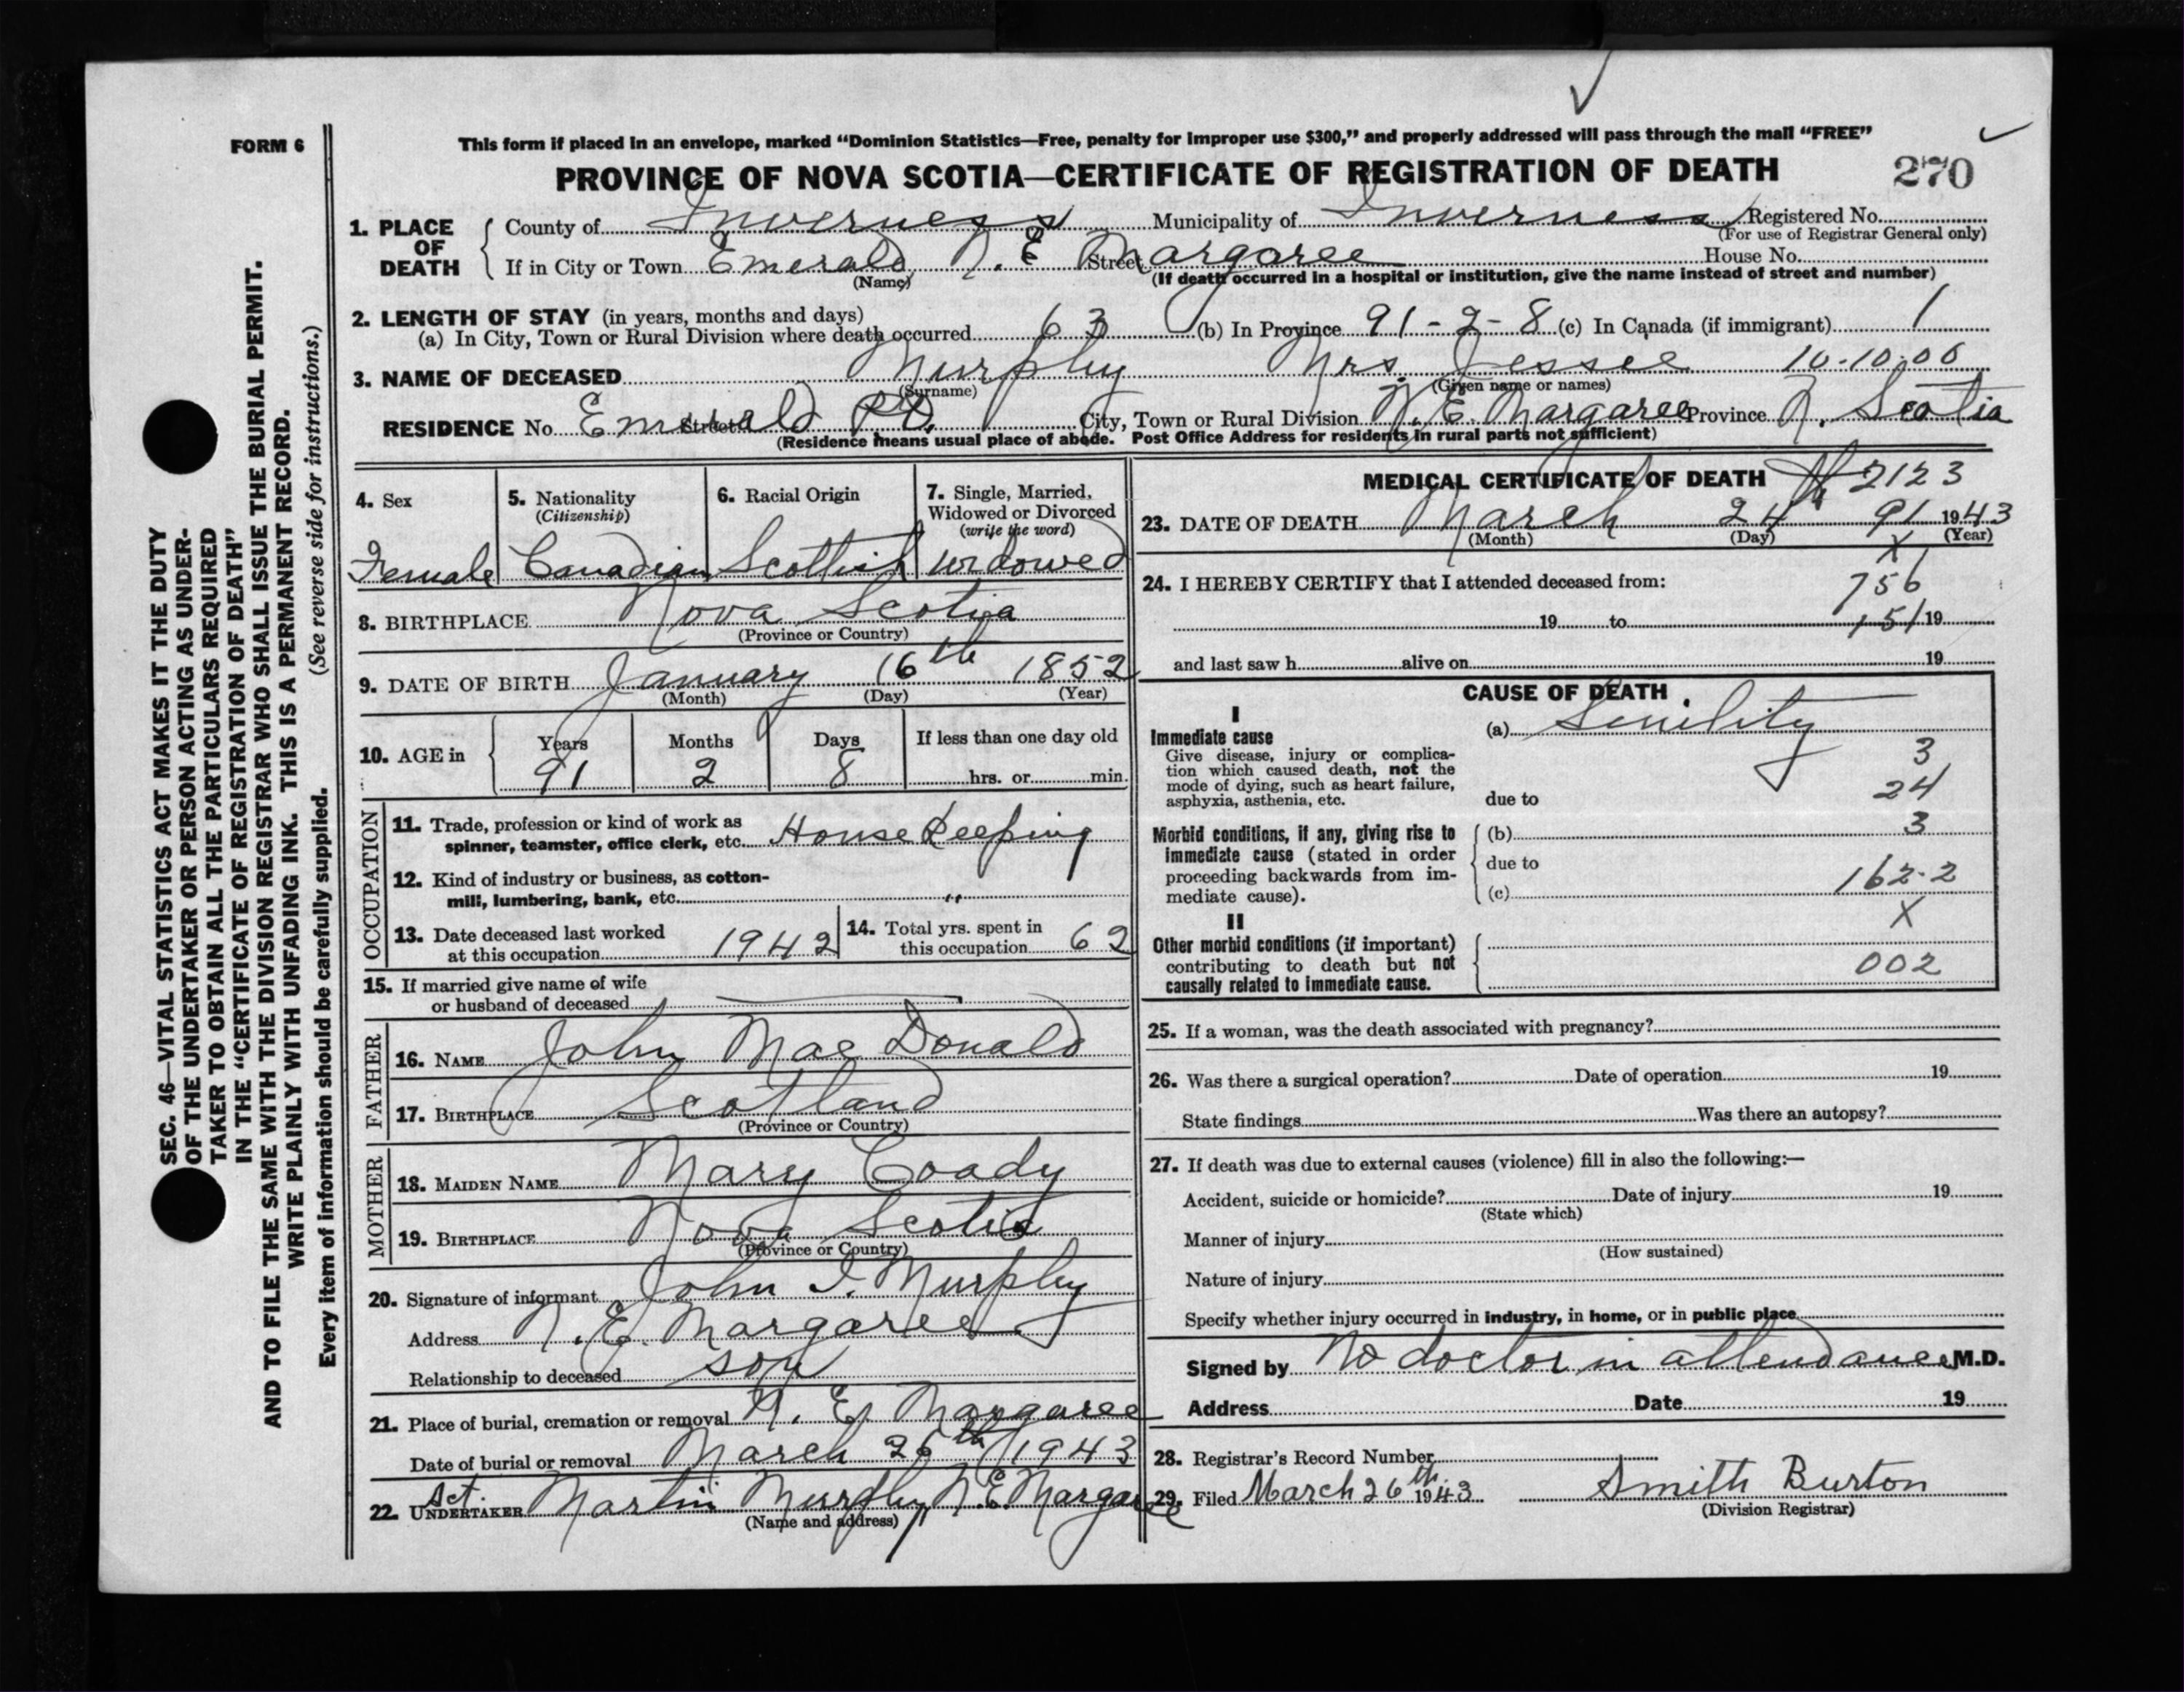 FORM 6
This form if placed in an envelope, marked "Dominion Statistics—Free, penalty for improper use $300," and properly addressed will pass through the mail "FREE"
PROVINCE OF NOVA SCOTIA—CERTIFICATE OF REGISTRATION OF DEATH 270
SEC. 46—VITAL STATISTICS ACT MAKES IT THE DUTY
OF THE UNDERTAKER OR PERSON ACTING AS UNDER-
TAKER TO OBTAIN ALL THE PARTICULARS REQUIRED
IN THE "CERTIFICATE OF REGISTRATION OF DEATH"
AND TO FILE THE SAME WITH THE DIVISION REGISTRAR WHO SHALL ISSUE THE BURIAL PERMIT.
WRITE PLAINLY WITH UNFADING INK. THIS IS A PERMANENT RECORD.
Every item of information should be carefully supplied. (See reverse side for instructions.)
1. PLACE OF DEATH
County of Inverness Municipality of Inverness Registered No.
(For use of Registrar General only)
If in City or Town Emerald N. E Margaree Street House No.
(Name) (If death occurred in a hospital or institution, give the name instead of street and number)
2. LENGTH OF STAY (in years, months and days)
(a) In City, Town or Rural Division where death occurred 63 (b) In Province 91-2-8 (c) In Canada (if immigrant) 1
3. NAME OF DECEASED Murphy Mrs. Jessie 10-10-06
(Surname) (Given name or names)
RESIDENCE No. Emerald P.O. Street City, Town or Rural Division N. E. Margaree Province N. Scotia
(Residence means usual place of abode. Post Office Address for residents in rural parts not sufficient)
4. Sex
Female
5. Nationality
(Citizenship)
Canadian
6. Racial Origin
Scottish
7. Single, Married,
Widowed or Divorced
(write the word)
Widowed
8. BIRTHPLACE Nova Scotia
(Province or Country)
9. DATE OF BIRTH January 16th 1852
(Month) (Day) (Year)
10. AGE in
Years Months Days If less than one day old
91 2 8 hrs. or min.
OCCUPATION
11. Trade, profession or kind of work as
spinner, teamster, office clerk, etc. House Keeping
12. Kind of industry or business, as cotton-
mill, lumbering, bank, etc. "
13. Date deceased last worked
at this occupation 1942
14. Total yrs. spent in
this occupation 62
15. If married give name of wife
or husband of deceased
FATHER
16. NAME John Mac Donald
17. BIRTHPLACE Scotland
(Province or Country)
MOTHER
18. MAIDEN NAME Mary Coady
19. BIRTHPLACE Nova Scotia
(Province or Country)
20. Signature of informant John I. Murphy
Address N. E. Margaree
Relationship to deceased son
21. Place of burial, cremation or removal N. E. Margaree
Date of burial or removal March 26th 1943
22. Act. UNDERTAKER Martin Murphy, N. E. Margaree
(Name and address)
MEDICAL CERTIFICATE OF DEATH 2123
23. DATE OF DEATH March 24 91 1943
(Month) (Day) (Year)
X
24. I HEREBY CERTIFY that I attended deceased from: 756
19 to 151 19
and last saw h alive on 19
CAUSE OF DEATH
I
Immediate cause
Give disease, injury or complica-
tion which caused death, not the
mode of dying, such as heart failure,
asphyxia, asthenia, etc.
(a) Senility
3
24
due to
Morbid conditions, if any, giving rise to
immediate cause (stated in order
proceeding backwards from im-
mediate cause).
(b) 3
due to
(c) 162-2
X
II
Other morbid conditions (if important)
contributing to death but not
causally related to immediate cause.
002
25. If a woman, was the death associated with pregnancy?
26. Was there a surgical operation? Date of operation 19
State findings Was there an autopsy?
27. If death was due to external causes (violence) fill in also the following:—
Accident, suicide or homicide? Date of injury 19
(State which)
Manner of injury
(How sustained)
Nature of injury
Specify whether injury occurred in industry, in home, or in public place
Signed by No doctor in attendance M.D.
Address Date 19
28. Registrar's Record Number
29. Filed March 26th 1943 Smith Burton
(Division Registrar)